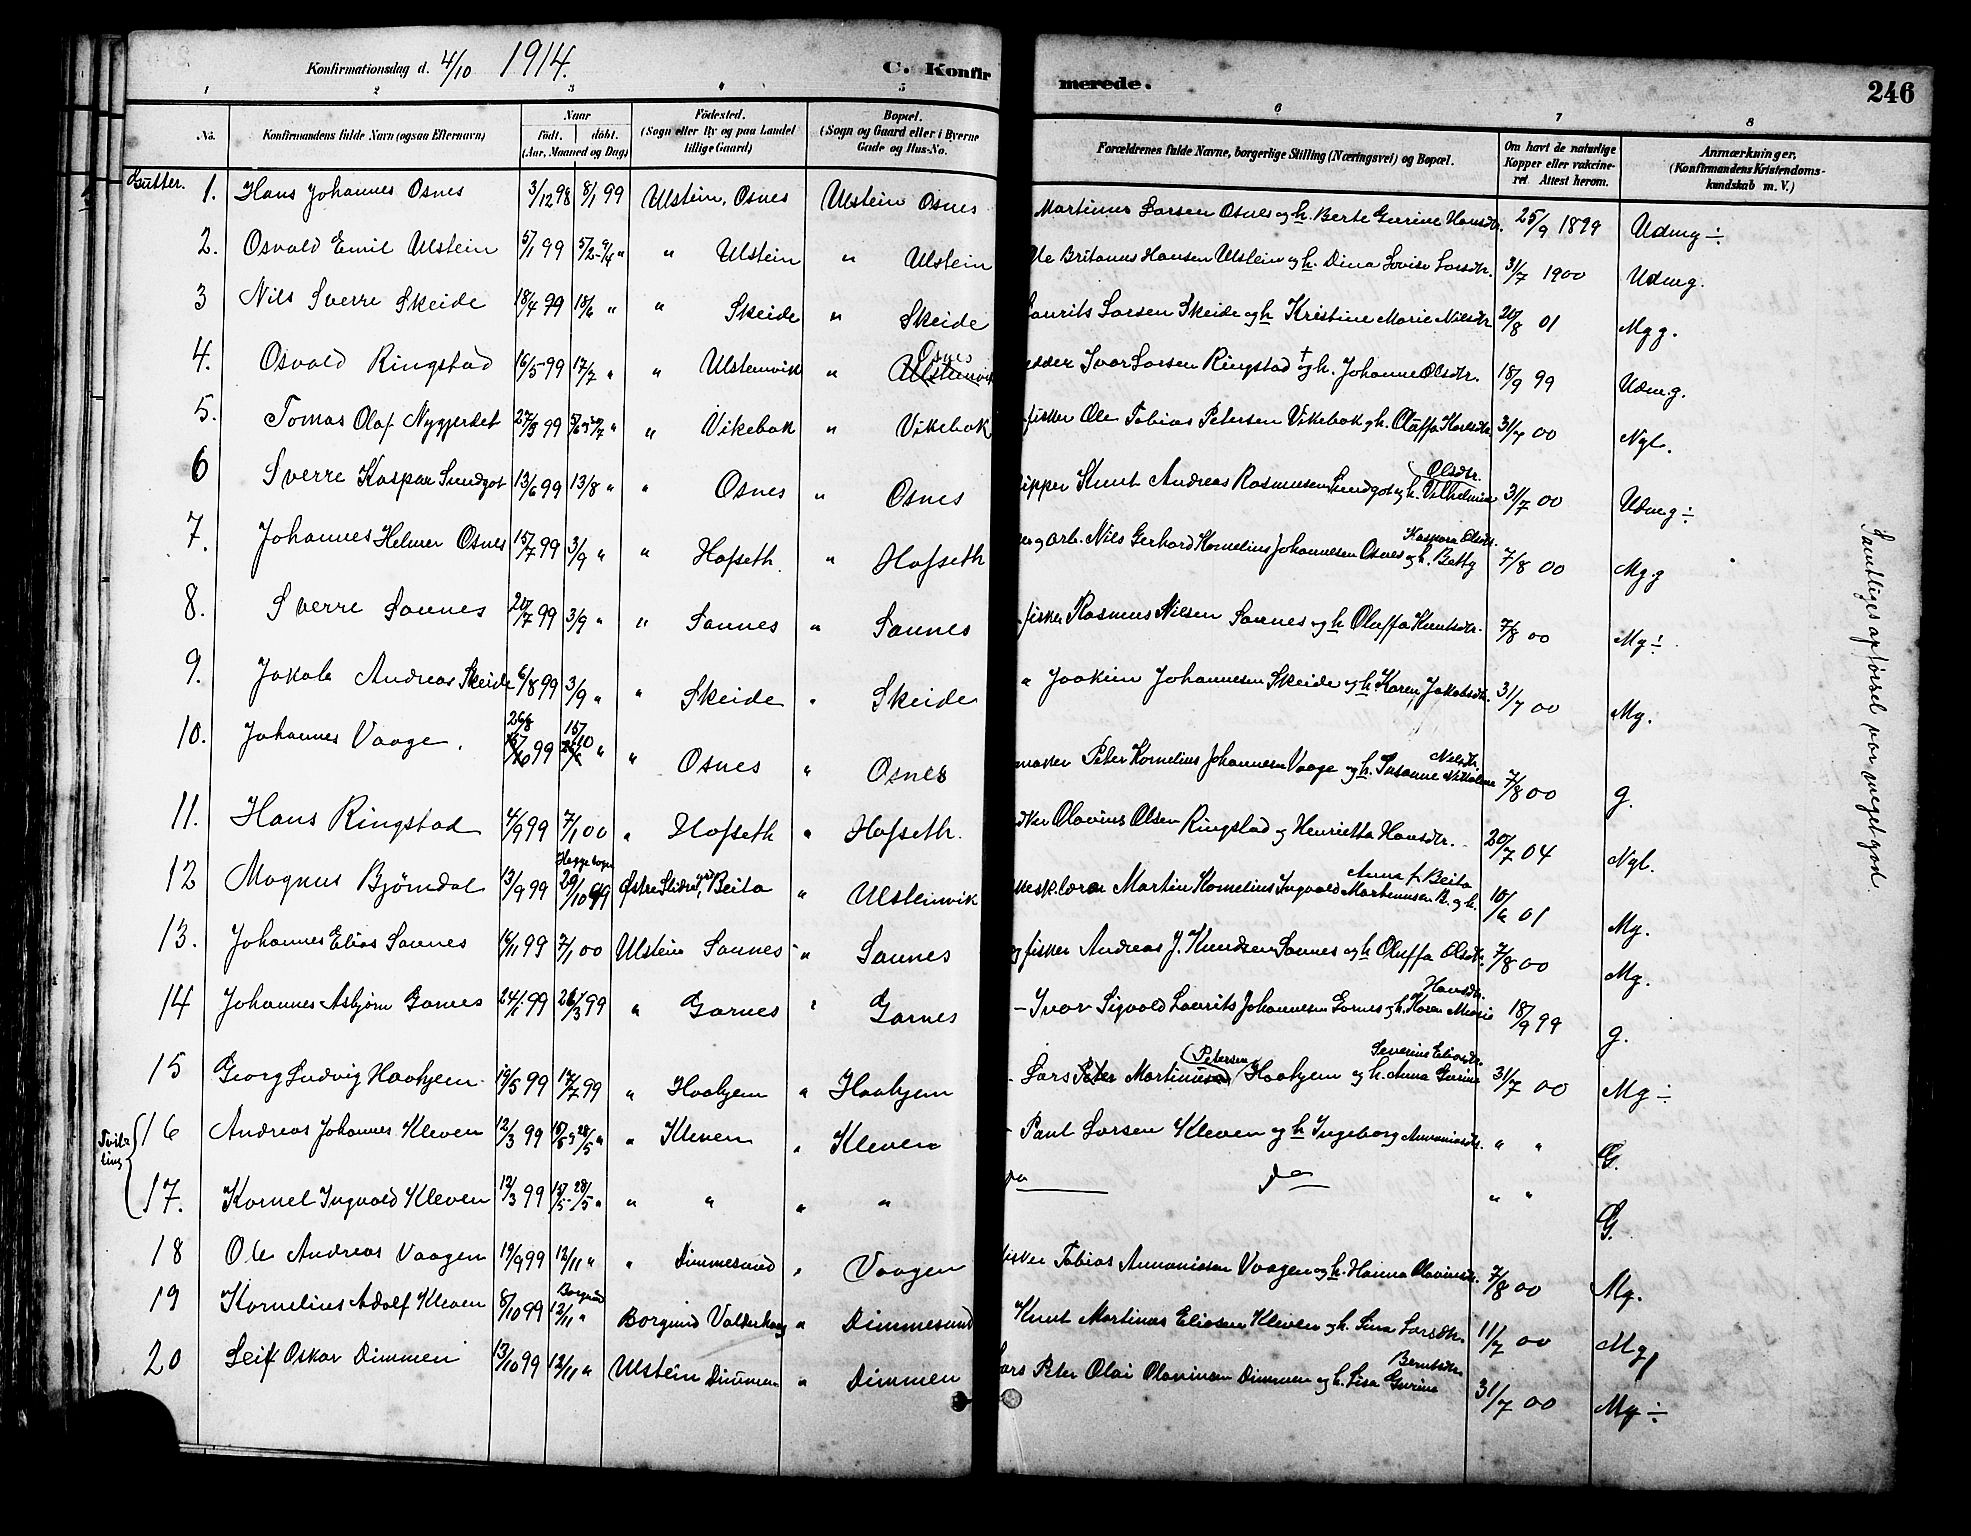 Konfirmationsdag d. 4/10 1914. C. Konfirmerede. 246
1 2 3 4 5 6 7 8
No. Konfirmandens fulde Navn (ogsaa Efternavn) Naar födt. döbt. (Aar, Maaned og Dag) Födested. (Sogn eller By og paa Landet tillige Gaard) Bopæl. (Sogn og Gaard eller i Byerne Gade og Hus-No. Forældrenes fulde Navne, borgerlige Stilling (Næringsvei) og Bopæl. Om havt de naturlige Kopper eller vakcineret. Attest herom. Anmærkninger, (Konfirmandens Kristendomskundskab m. V.)
Gutter.
1. Hans Johannes Osnes 3/12 98 8/1 99 Ulstein, Osnes Ulstein Osnes Martinus Larsen Osnes og h. Berte Gurine Hansdtr. 25/9 1899 Udmg ÷
2. Osvald Emil Ulstein 5/1 99 5/2-9/4 " " Ulstein " Ulstein Ole Britanus Hansen Ulstein og h. Dina Lovise Larsdtr. 31/7 1900 Udmg.
3 Nils Sverre Skeide 18/4 99 18/6 " " Skeide " Skeide Laurits Larsen Skeide og h Kristine Marie Nilsdtr 20/8 01 Mgg.
4. Osvald Ringstad 16/5 99 17/7 " " Ulstenvik " Osnes Ulstenvik Ivar Larsen Ringstad † og h. Johanne Olsdtr. 18/9 99 Udm.g.
5. Tomas Olaf Nygjerdet 27/5 99 " " Vikebak " Vikebak fisker Ole Tobias Petersen Vikebak og h. Oluffa Karlsdtr 31/7 00 Ngl.
6 Sverre Kaspar Sundgot 13/6 99 13/8 " " Osnes " Osnes Knut Andreas Rasmussen Sundgot og h. Vilhelmine Olsdtr. 31/7 00 Udm.g ÷
7. Johannes Helmer Osnes 15/7 99 3/9 " " Hofseth. " Hofseth og arb. Nils Gerhard Kornelius Johannesen Osnes og h. Betty Kaspara Olsdtr. 7/8 00 Mg.g
8. Sverre Saunes 20/7 99 3/9 " " Saunes " Saunes fisker Rasmus Nilsen Saunes og h Oluffa Knutsdtr. 7/8 00 Mg ÷
9. Jakob Andreas Skeide 6/8 99 3/9 " " Skeide " Skeide " Joakim Johannesen Skeide og h. Karen Jakobsdtr. 31/7 00 Mg.
10. Johannes Vaage. 26/8 99 15/10 " " Osnes " Osnes Peter Kornelius Johannesen Vaage og h. Susanne Nikoline Nilsdtr. 7/8 00 g.
11. Hans Ringstad 4/9 99 7/1 00 " Hofseth " Hofseth. Olavius Olsen Ringstad og Henrietta Hansdtr. 20/7 04 Ngl.
12 Magnus Bjørndal 13/9 99 Hegge sogn 29/10 99 Østre Slidre, Beito " Ulstenvik Martin Kornelius Ingvald Martinussen B. og h. Anna f. Beito 10/6 01 Mg.
13. Johannes Elias Saunes 16/11 99 7/1 00 Ulstein Saunes " Saunes og fisker Andreas J. Knudsen Saunes og h Oluffa Olsdtr. 7/8 00 Mg.
14 Johannes Asbjørn Garnes 24/1 99 26/3 99 " Garnes " Garnes - Ivar Sigvald Laurits Johannesen Garnes og h. Karen Marie Hansdtr. 18/9 99 g.
15 Georg Ludvig Haakjem 19/5 99 17/7 99 " Haakjem " Haakjem - Lars Peter Martinus Petersen Haakjem og h. Anna Gurine Severine Eliasdtr. 31/7 00 Mg ÷
Tvilling
16 Andreas Johannes Kleven 12/3 99 15/5-28/5 " " Kleven " Kleven - Paul Larsen Kleven og h Ingeborg Ananiasdtr. " " G.
17. Kornel Ingvald Kleven 12/3 99 15/5-28/5 " " " " " do " " G.
18 Ole Andreas Vaagen 19/9 99 12/11 " " Dimmesund " Vaagen fisker Tobias Ananiasen Vaagen og h. Hanna Olavinedtr. 7/8 00 Mg.
19 Kornelius Adolf Kleven 8/10 99 Borgund 12/11 " Borgund Valderhaug " Dimmesund Knut Martinas Eliasen Kleven og h. Lina Larsdtr. 11/7 00 Mg
20 Leif Oskar Dimmen 13/10 99 12/11 " Ulstein Dimmen " Dimmen Lars Peter Olai Olavinsen Dimmen og h. Lisa Gurine Berntsdtr. 31/7 00 Mg ÷
Samtliges opførsel var meget god.